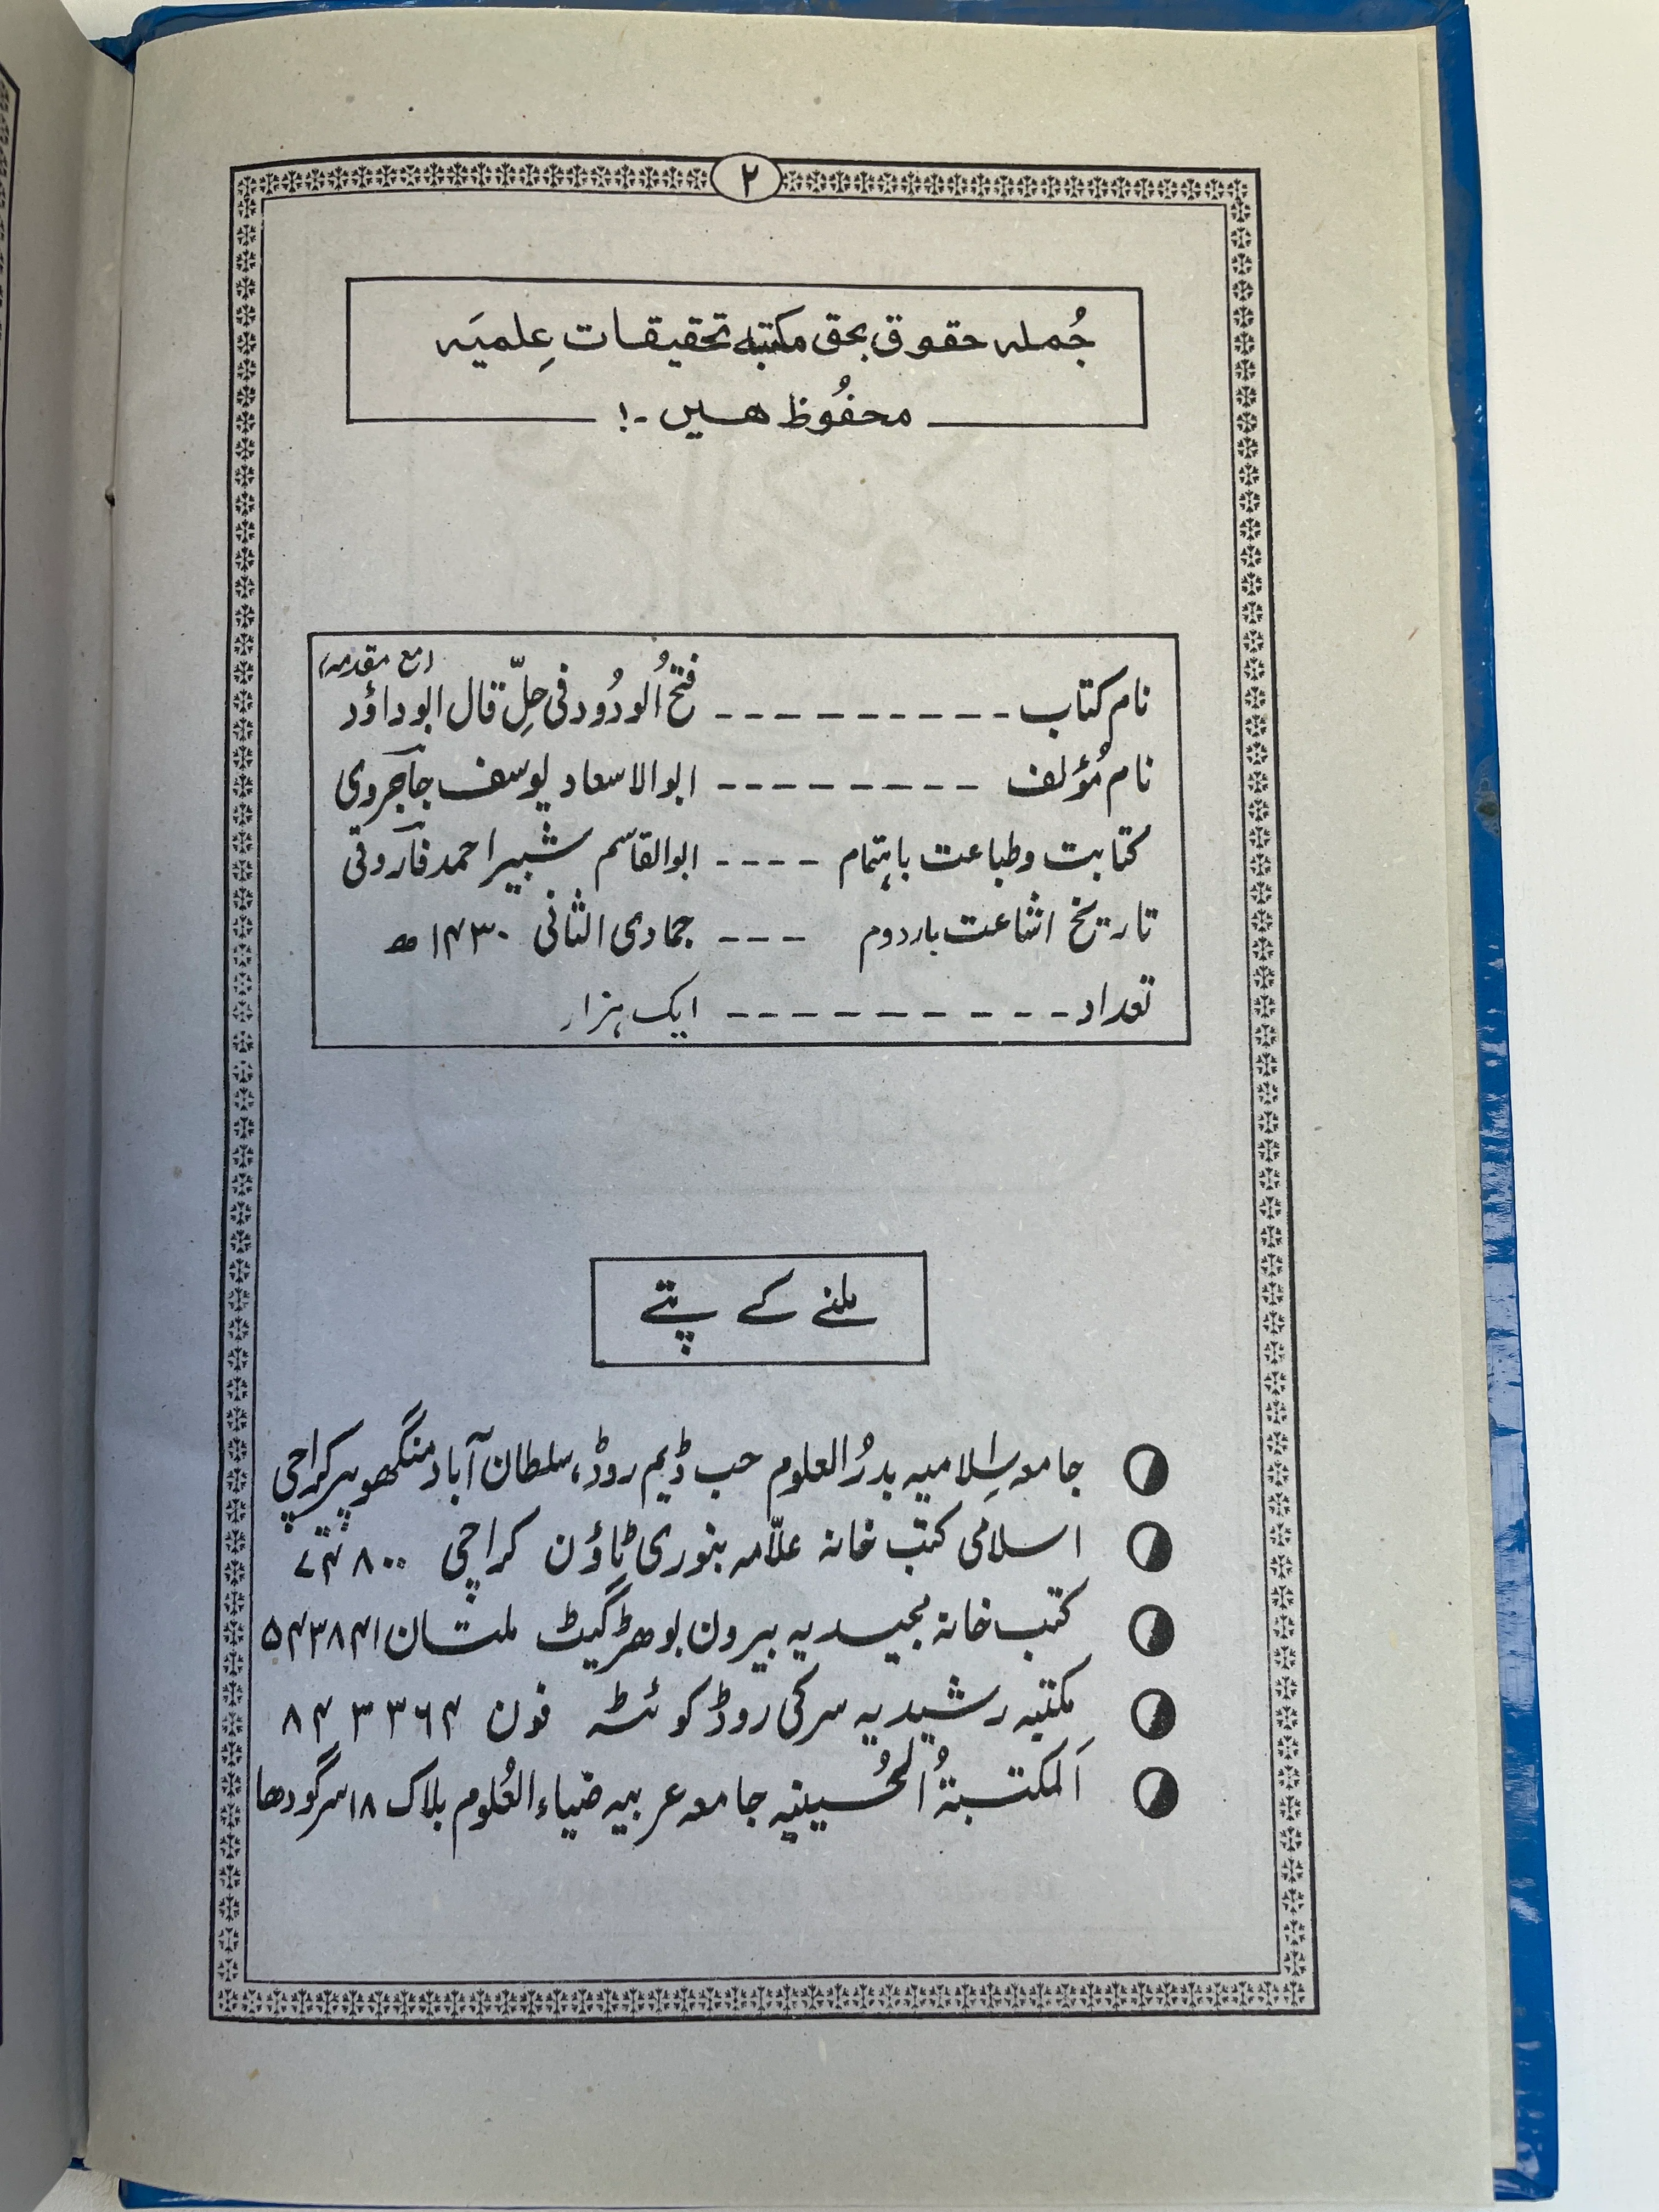 ۲
جُملہ حقوق بحق مکتبہ تحقیقات عِلمیَہ
محفُوظ ھیں۔!
(مع مقدمہ)
نام کتاب ---------- فتحُ الودُود فی حلِّ قال ابوداؤد
نام مُؤلف --------- ابوالاسعاد یوسف جاجروی
کتابت وطباعت باہتمام ---- ابوالقاسم شبیر احمد فاروقی
تاریخ اشاعت بار دوم --- جمادی الثانی ۱۴۳۰ھ
تعداد ---------- ایک ہزار
ملنے کے پتے
جامعہ اِسلامیہ بدرُ العلوم حب ڈیم روڈ، سلطان آباد منگھوپیر کراچی
اسلامی کتب خانہ علاّمہ بنوری ٹاؤن کراچی ۷۴۸۰۰
کتب خانہ مجیدیہ بیرون بوھڑ گیٹ ملتان ۵۴۳۸۴۱
مکتبہ رشیدیہ سرکی روڈ کوئٹہ فون ۸۴۳۳۶۴
اَلمکتبۃُ الحُسینیہ جامعہ عربیہ ضیاء العُلوم بلاک ۱۸ سرگودھا